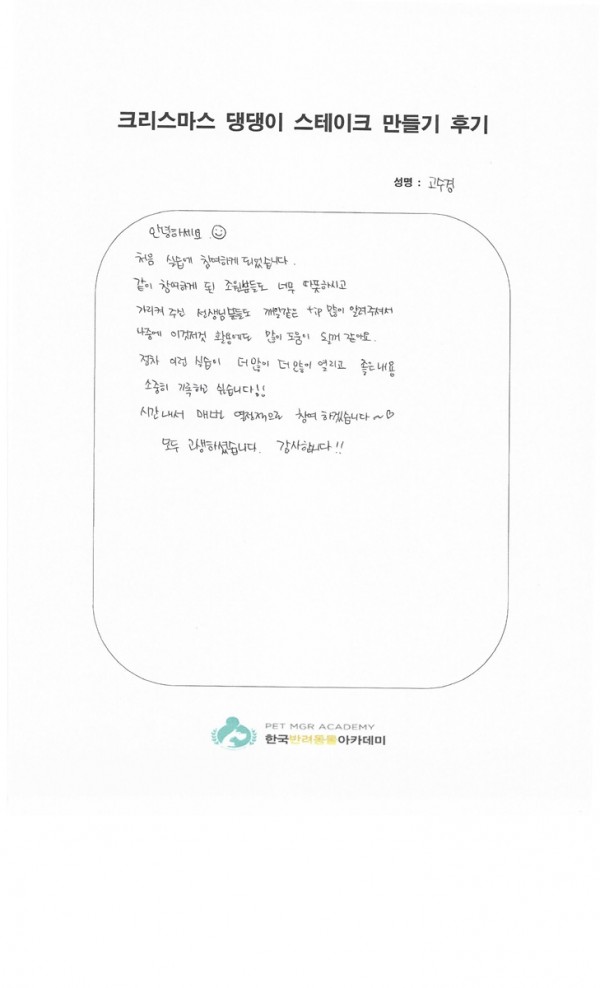 크리스마스 댕댕이 스테이크 만들기 후기
성명 : 고수경
안녕하세요
처음 실습에 참여하게 되었습니다.
같이 참여하게 된 조원분들도 너무 따뜻하시고
가리켜 주신 선생님분들도 깨알같은 tip 많이 알려주셔서
나중에 이것저것 활용에도 많이 도움이 될꺼 같아요.
점차 이런 실습이 더 많이 더 많이 열리고 좋은 내용
소중히 기록하고 싶습니다!!
시간내서 매번 열정적으로 참여 하겠습니다~♡
모두 고생하셨습니다. 감사합니다!!
PET MGR ACADEMY
한국반려동물아카데미